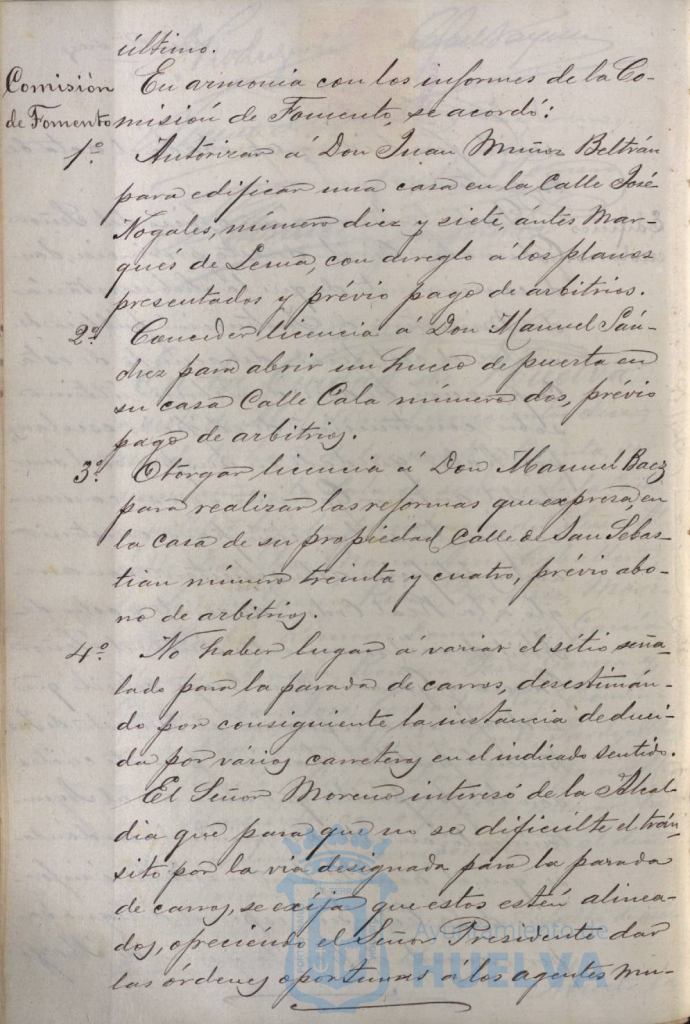 último.
Comisión de Fomento
En armonia con los informes de la Co-
misión de Fomento, se acordó:
1º. Autorizar á Don Juan Muñoz Beltrán
para edificar una casa en la Calle José
Nogales, número diez y siete, ántes Mar-
qués de Lema, con arreglo á los planos
presentados y prévio pago de arbitrios.
2º. Conceder licencia á Don Manuel Sán-
chez para abrir un hueco de puerta en
su casa Calle Cala número dos, prévio
pago de arbitrios.
3º. Otorgar licencia á Don Manuel Baez
para realizar las reformas que expresa, en
la casa de su propiedad, Calle de San Sebas-
tian número treinta y cuatro, prévio abo-
no de arbitrios.
4º. No haber lugar á variar el sitio seña-
lado para la parada de carros, desestimán-
do por consiguiente la instancia deduci-
da por vários carreteros en el indicado sentido.
El Señor Moreno interesó de la Alcal-
dia que para que no se dificulte el trán-
sito por la via designada para la parada
de carros, se exija que estos estén alinea-
dos, ofreciéndo el Señor Presidente dar
las órdenes oportunas á los agentes mu-
Ayuntamiento de
HUELVA